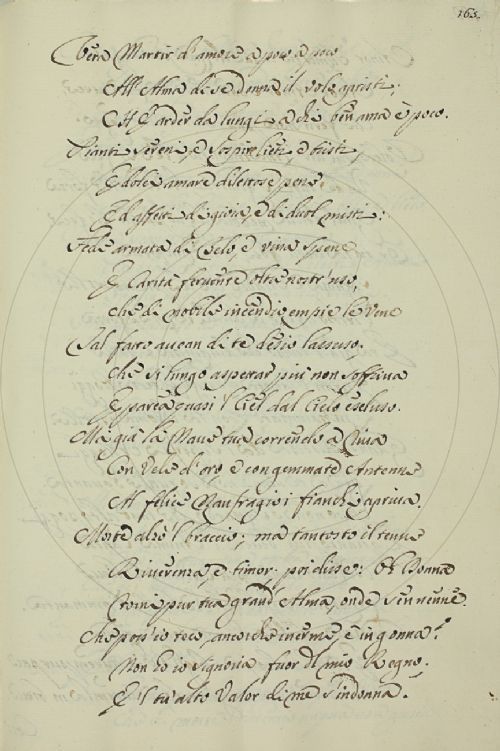 165.
Vera Martir d'amore a poco a poco
All'Alma de se donna il volo apristi;
Ch'l'arder da lungi a chi ben ama è poco.
Pianti sereni, e sospir lieti, e tristi,
E dolci amare dilettose pene,
Ed affetti di gioia, e di duol misti:
Fede armata di Zelo, e viva spene
E Carità fervente oltre nostr'uso,
Che di nobile incendio empie le Vene
Tal fatto avean di te desio lassuso,
Che sì lungo aspettar più non soffriva
E parea quasi 'l Ciel dal Cielo escluso.
Ma già la Nave tua correndo a Riva
Con Vele d'oro, e con gemmate Antenne
Al felice Naufragio i fianchi apriva.
Morte alzò 'l braccio; ma tantosto il tenne
Riverenza, e timor. poi disse: Oh Donna
Torni pur tua grand'Alma, onde sen venne.
Che poss'io teco, ancorchè inerme, e in gonna?
Non ho io Signoria fuor del mio Regno.
E 'l tu' alto Valor di me s'indonna.